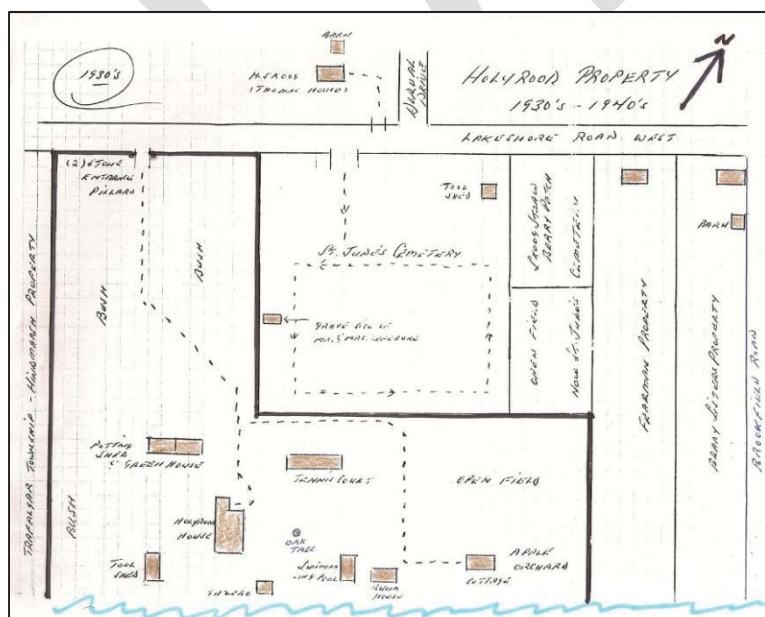 1930's
BARN
H. SKOOG
(THOMAS HOUSE)
DORVAL
DRIVE
HOLYROOD PROPERTY
1930's - 1940's
N
LAKESHORE ROAD WEST
(2) STONE
ENTRANCE
PILLARS
BUSH
BUSH
BUSH
TRAFALGAR TOWNSHIP - HINDMARSH PROPERTY
TOOL
SHED
ST. JUDE'S CEMETERY
GRAVE SITE OF
MR. & MRS.
SKOOG STRAW
BERRY PATCH
CEMETERY
OPEN FIELD
NOW ST. JUDE'S
FEARMAN PROPERTY
BARN
BERRY SISTERS PROPERTY
BROOKFIELD ROAD
POTTING
SHED
& GREEN HOUSE
TENNIS COURT
OPEN FIELD
HOLYROOD
HOUSE
OAK
TREE
TOOL
SHED
GAZEBO
SWIMM
ING POOL
HOUSE
APPLE
ORCHARD
COTTAGE